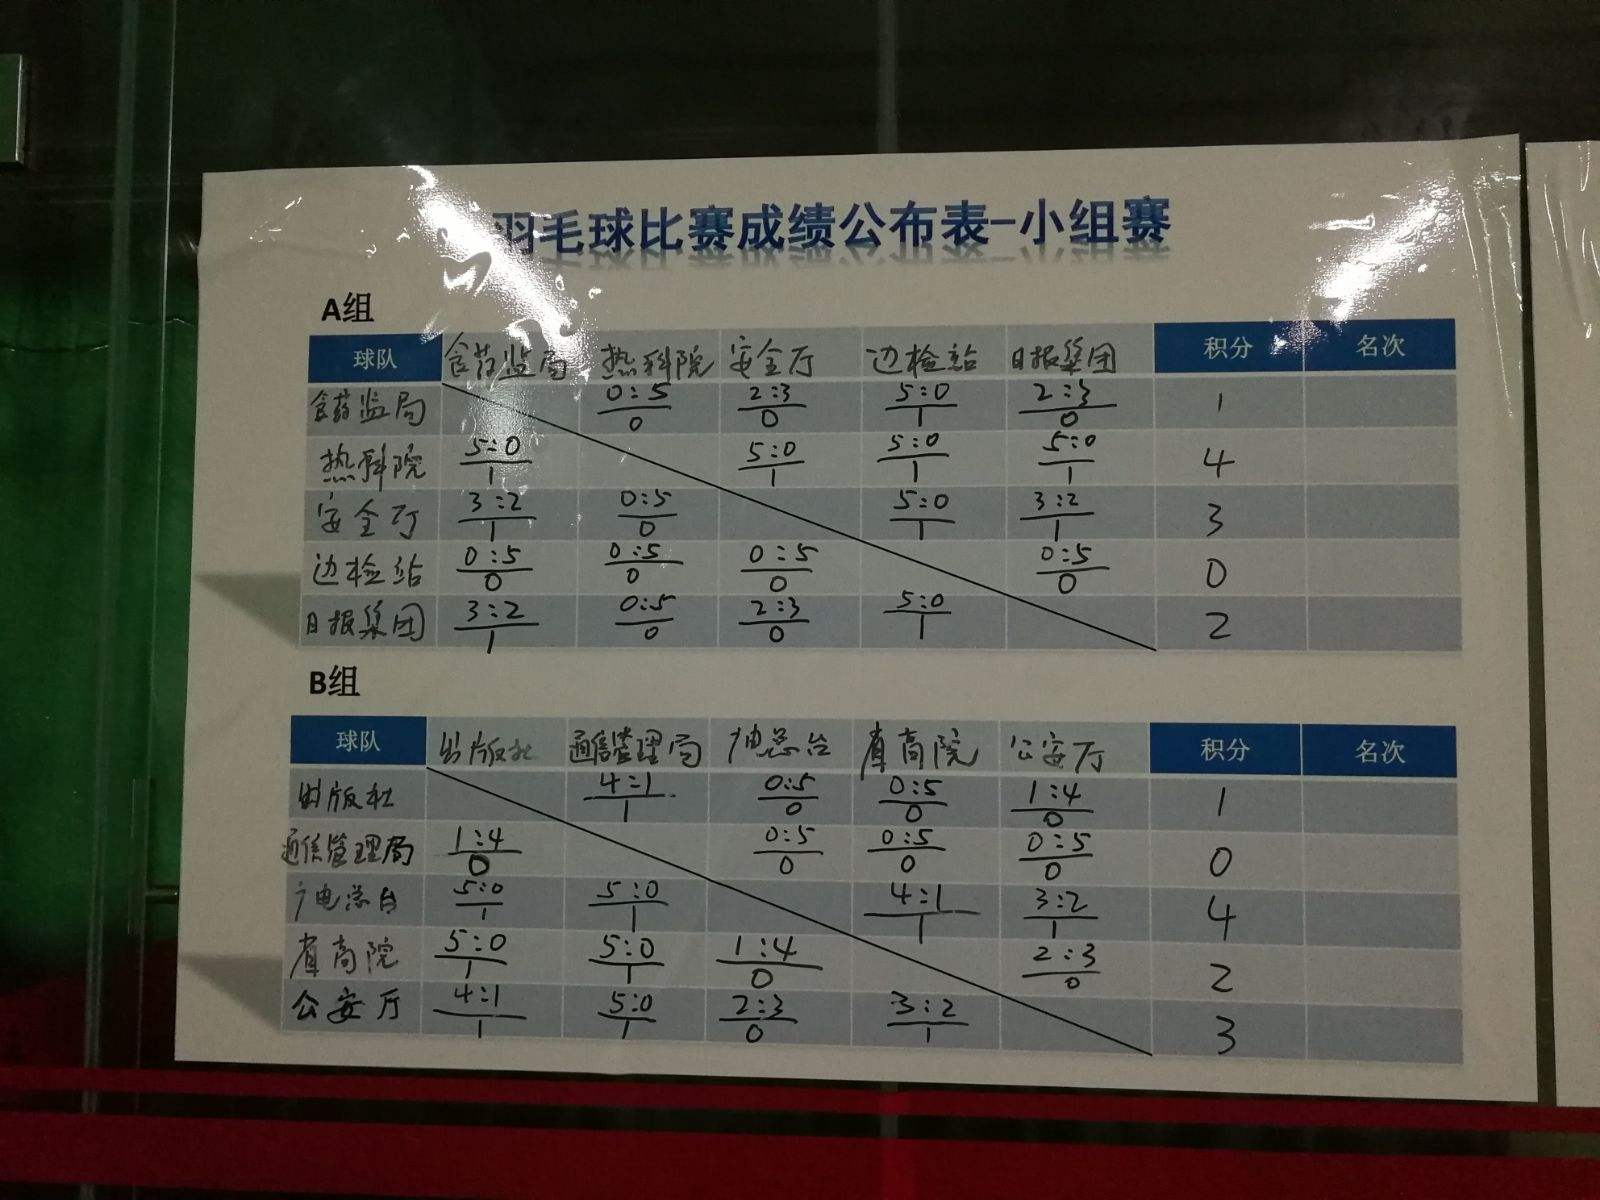 羽毛球比赛成绩公布表-小组赛
A组
球队 食药监局 热科院 安全厅 边检站 日报集团 积分 名次
食药监局 0:5 2:3 5:0 2:3 1
0 0 1 0
热科院 5:0 5:0 5:0 5:0 4
1 1 1 1
安全厅 3:2 0:5 5:0 3:2 3
1 0 1 1
边检站 0:5 0:5 0:5 0:5 0
0 0 0 0
日报集团 3:2 0:5 2:3 5:0 2
1 0 0 1
B组
球队 出版社 通信管理局 广电总台 省高院 公安厅 积分 名次
出版社 4:1 0:5 0:5 1:4 1
1 0 0 0
通信管理局 1:4 0:5 0:5 0:5 0
0 0 0 0
广电总台 5:0 5:0 4:1 3:2 4
1 1 1 1
省高院 5:0 5:0 1:4 2:3 2
1 1 0 0
公安厅 4:1 5:0 2:3 3:2 3
1 1 0 1